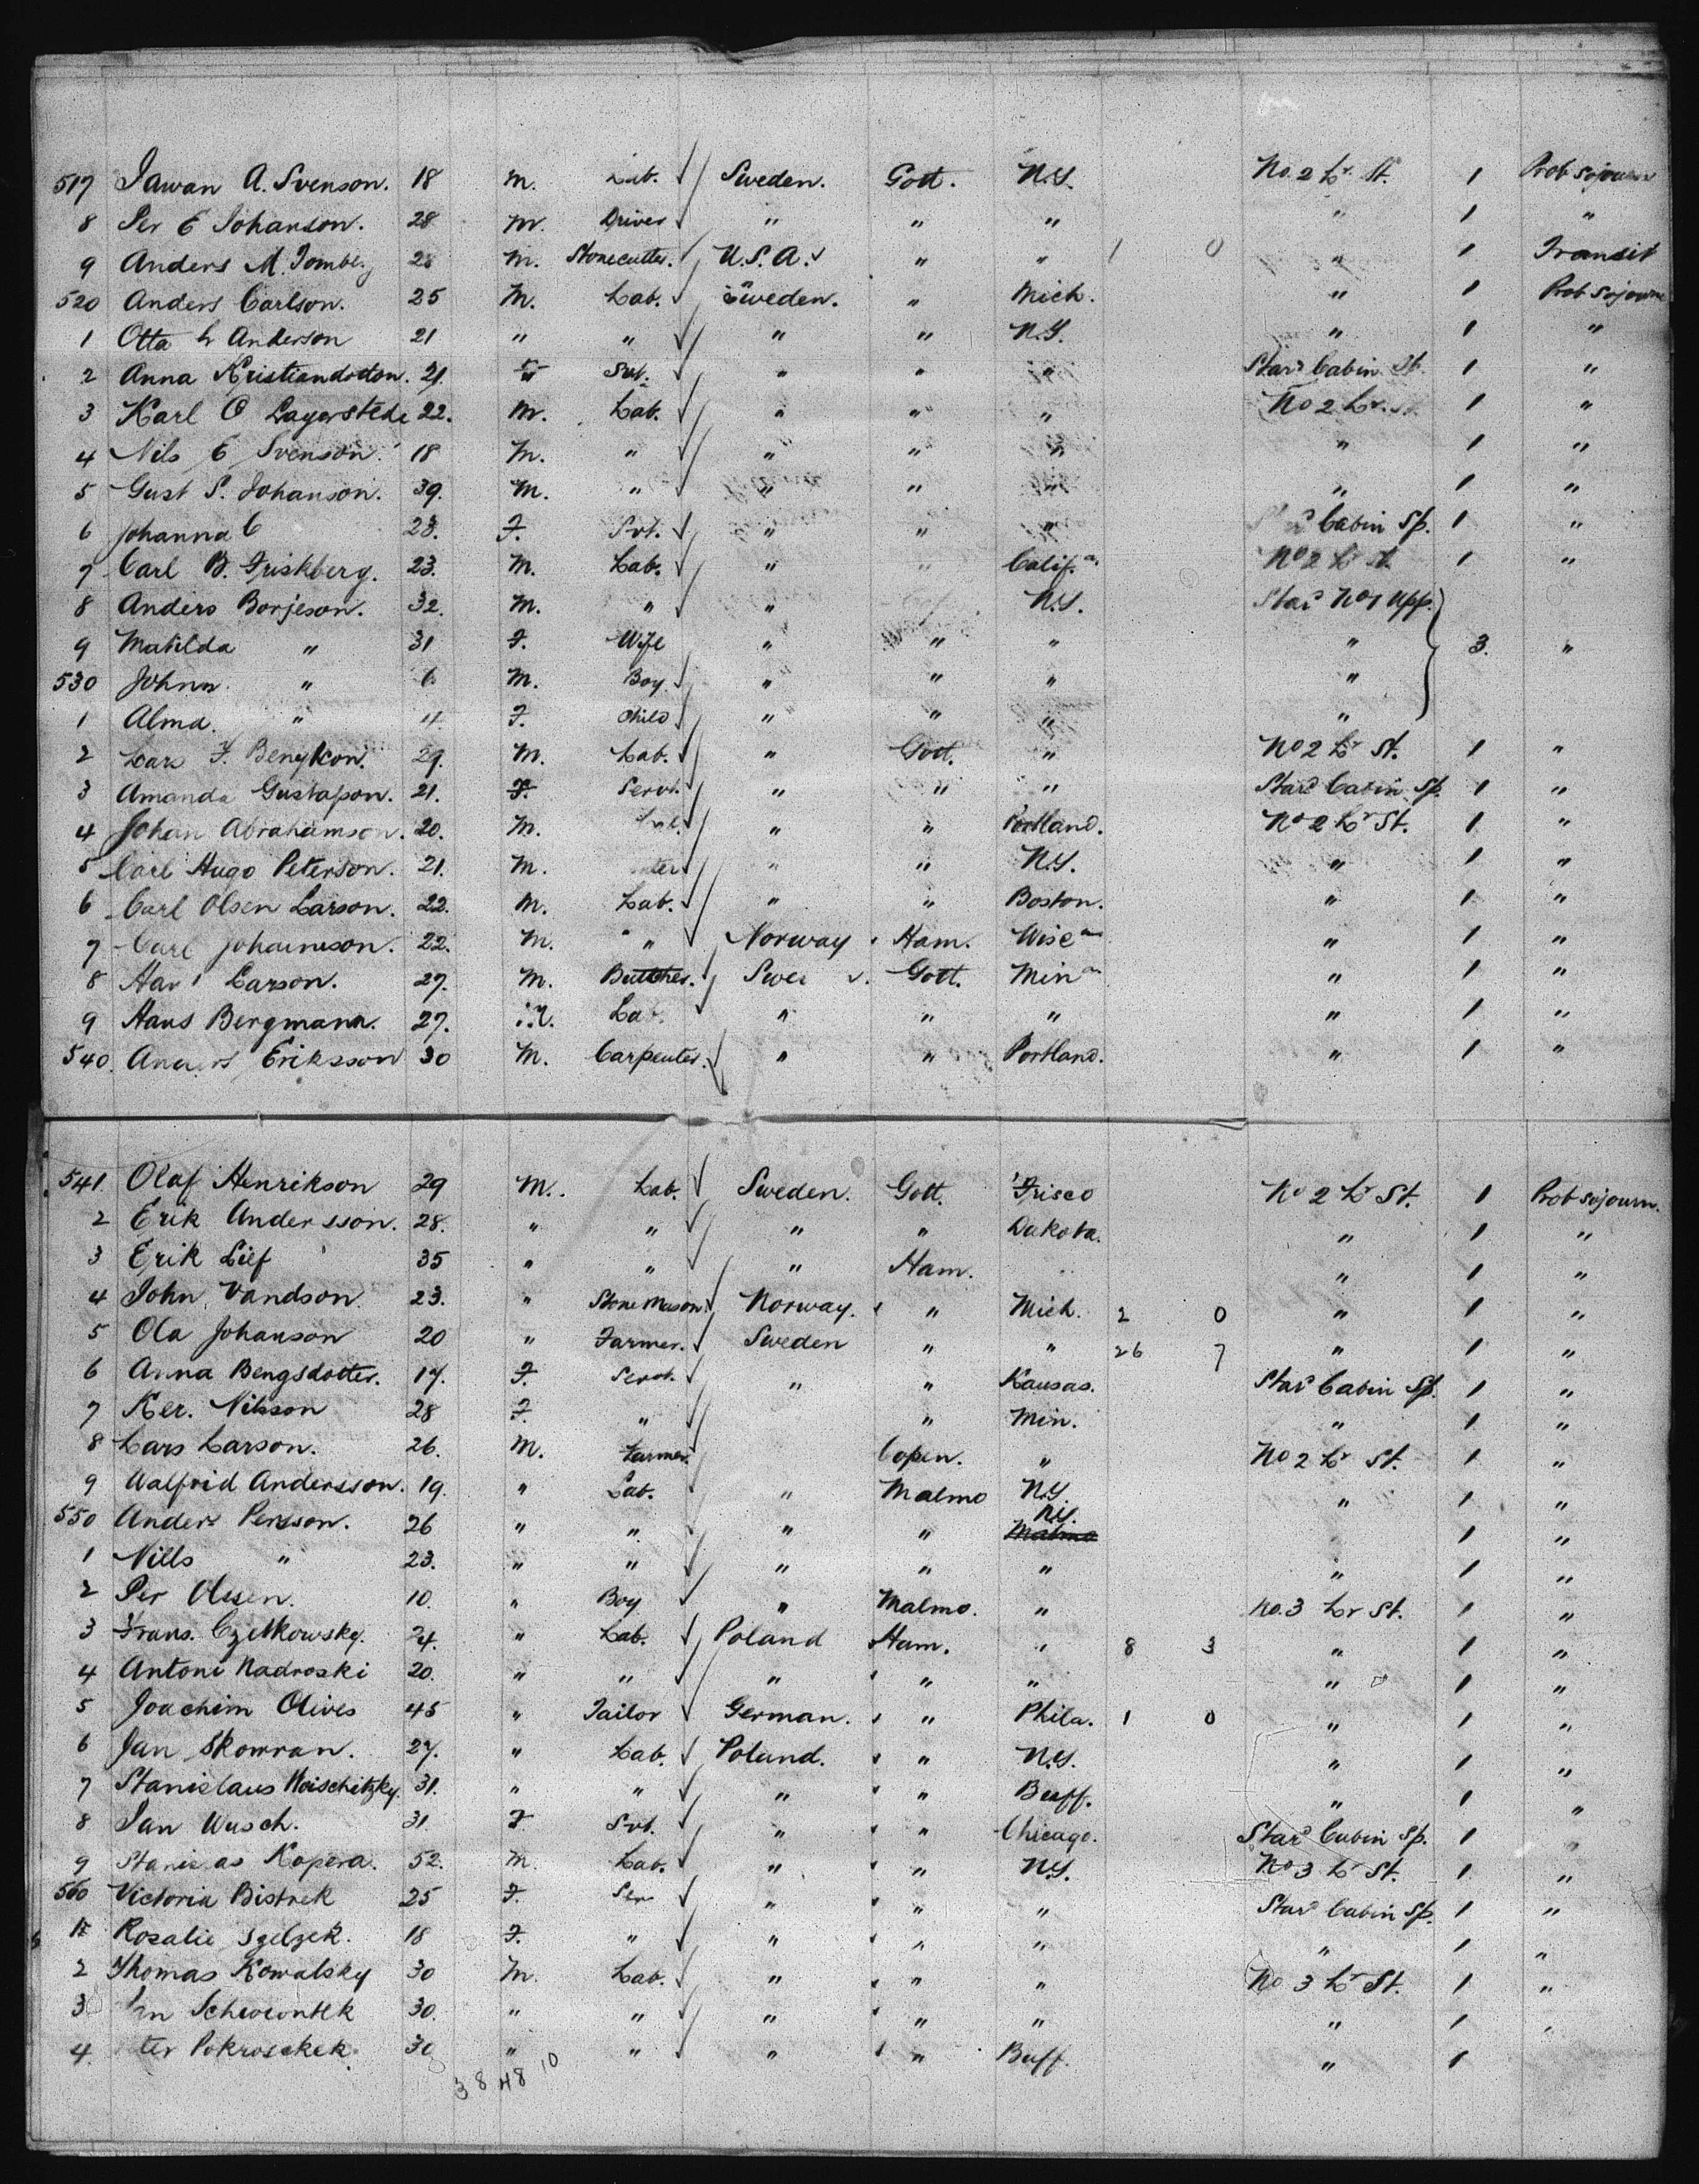 517 Iawan A. Svenson. 18 M. Lab. Sweden. Gott. N.Y. No. 2 Lr. St. 1 Prob sojourn
8 Per E Johanson. 28 M. Driver " " " " 1 "
9 Anders M. 28 M. Stonecutter. U.S.A. " " 1 0 " 1 Transit
520 Anders Carlson. 25 M. Lab. Sweden. " Mich. " 1 Prob sojourn
1 Otta Anderson 21 " " " " N.Y. " 1 "
2 Anna 21. Svt. " " " Star^d Cabin St. 1 "
3 Karl O Lagerstede 22. M. Lab. " " " No 2 Lr. St. 1 "
4 Nils E Svenson. 18 M. " " " " " 1 "
5 Gust S. Johanson. 39. M. " " " " " 1 "
6 Johanna C 23. F. Svt. " " " Cabin Sp. 1 "
7 Carl B. Friskberg. 23. M. Lab. " " Calif. No 2 Lr St. 1 "
8 Anders Borjeson. 32. M. " " N.Y. Star^d No 1 Upp.
9 Matilda " 31 F. Wife " " " " 3. "
530 Johnn. " M. Boy " " " "
1 Alma. " 4 F. Child " " " "
2 Lars F. 29. M. Lab. " Gott. " No 2 Lr St. 1 "
3 Amanda Gustafson. 21. F. Servt. " " " Star^d Cabin Sp. 1 "
4 Johan Abrahamson. 20. M. " " Portland. No 2 Lr St. 1 "
5 Carl Hugo Peterson. 21. M. " " N.Y. " 1 "
6 Carl Olsen Larson. 22. M. Lab. " " Boston. " 1 "
7 Carl 22. M. " Norway Ham. Wisc " 1 "
8 Larson. 27. M. Butcher. Gott. Min " 1 "
9 Hans Bergmann. 27. " " " " 1 "
540. Anders Eriksson 30 M. Carpenter. " " Portland. " 1 "
541 Olaf Henrikson 29 M. Lab. Sweden. Gott. 'Frisco No 2 Lr St. 1 Prob sojourn.
2 Erik Andersson. 28. " " " " Dakota. " 1 "
3 Erik Lief 35 " " " Ham. " 1 "
4 John Vandson 23. " Stone Mason. Norway. " Mich. 2 0 " 1 "
5 Ola Johanson 20 " Farmer. Sweden " " 26 7 " 1 "
6 Anna Bengsdotter. 17. F. Servt. " " Kansas. Star^d Cabin Sp. 1 "
7 Ker. Nilsson 28 F. " " Min. " 1 "
8 Lars Larson. 26. M. Farmer. Copen. " No 2 Lr St. 1 "
9 Walfrid Andersson. 19. " Lab. " Malmo N.Y. " 1 "
550 Anders Persson. 26 " " " " N.Y. Malmo 1 "
1 Nills " 23. " " " " " " 1 "
2 Per Olssen. 10. " Boy " Malmo. " No. 3 Lr St. 1 "
3 Frans. Czetkowsky. 24. " Lab. Poland Ham. " 8 3 " 1 "
4 Antoni Nadroski 20. " " " " " " 1 "
5 Joachim Olives 45 " Tailor German. " Phila. 1 0 " 1 "
6 Jan Skowran. 27. " Lab. Poland. " N.Y. " 1 "
7 Stanislaus Woischitzky. 31. " " " " Buff. " 1 "
8 Jan Wusch. 31 F Svt. " " Chicago. Star^d Cabin Sp. 1 "
9 Stanislas Kopera. 52. M. Lab. " " N.Y. No 3 Lr St. 1 "
560 Victoria Bistrek 25 F. Ser " " " Star^d Cabin Sp. 1 "
1 Rosalie Szelzek. 18 F. " " " " " 1 "
2 Thomas Kowalsky 30 M. Lab. " " " No 3 Lr St. 1 "
3 30. " " " " " " 1
4. Pokrosckek. 30 " " " " Buff. " 1
38 48 10